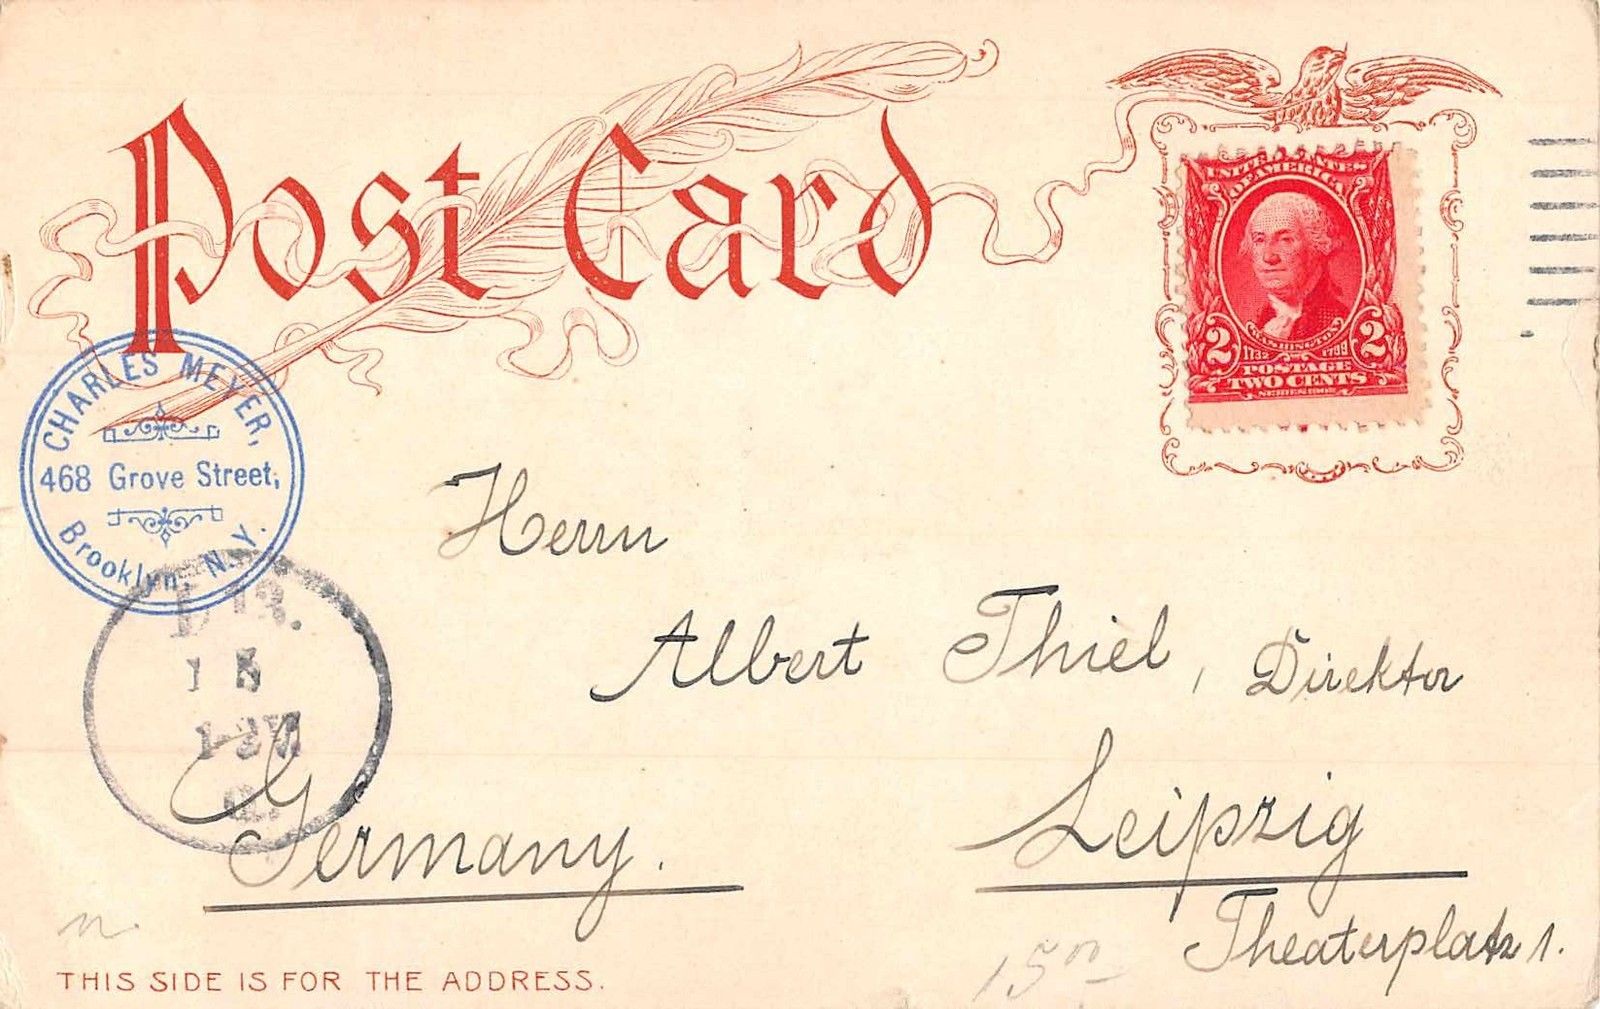 Post Card
UNITED STATES
OF AMERICA
WASHINGTON
1732 1799
2 2
POSTAGE
TWO CENTS
SERIES 1902
CHARLES MEYER,
468 Grove Street,
Brooklyn, N.Y.
Herrn
Albert Thiel, Direktor
Leipzig
Theaterplatz 1.
Germany.
n.
15
THIS SIDE IS FOR THE ADDRESS.